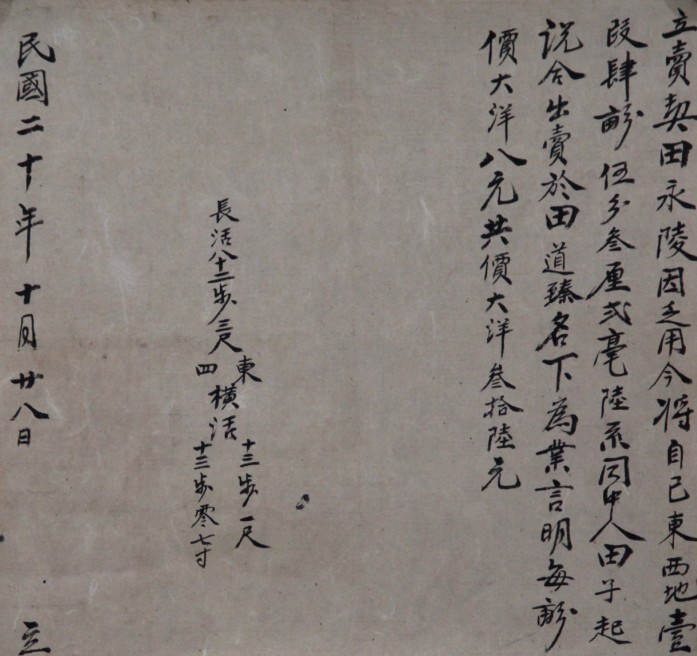 立賣契田永陵因乏用今將自己東西地壹
段肆畝伍分叁厘弍毫陸系同中人田子起
说合出賣於田道臻名下為業言明每畝
價大洋八元共價大洋叁拾陸元
長活八十二步三尺
東
四
橫活
十三步一尺
十三步零七寸
民國二十年十月廿八日
立